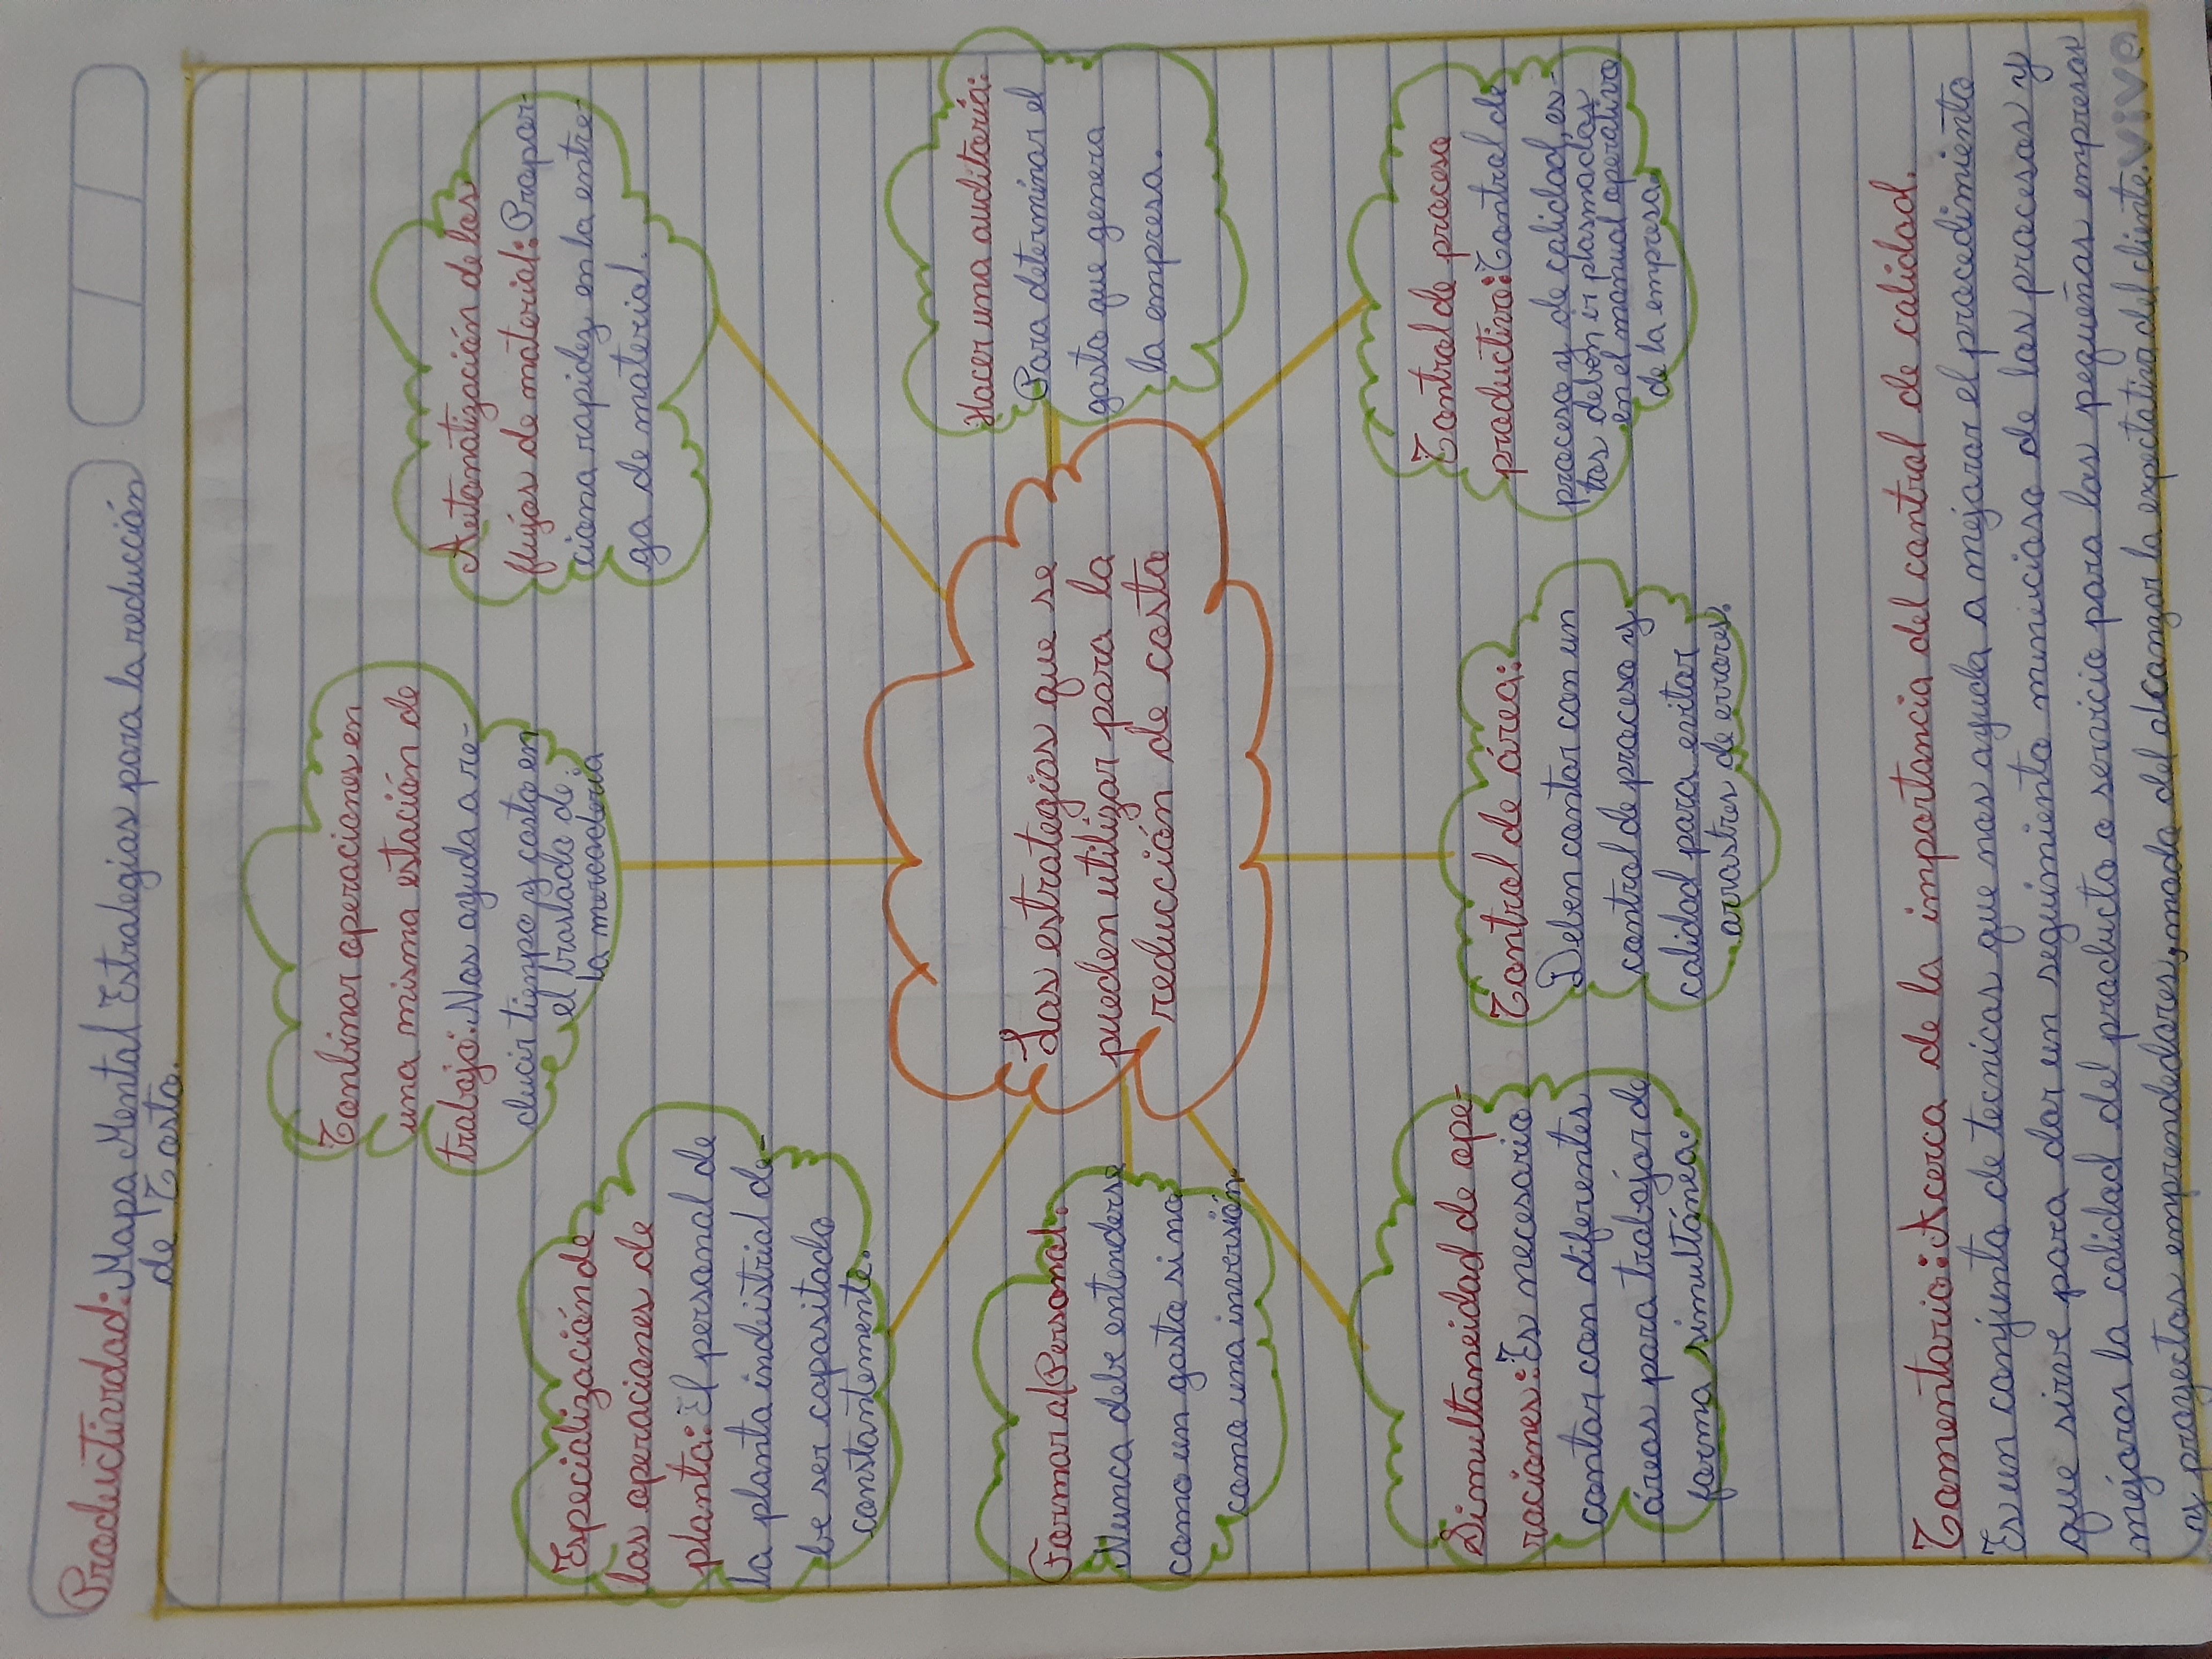 Productividad: Mapa Mental Estrategias para la reducción
de Costo.
Combinar operaciones en
una misma estación de
trabajo: Nos ayuda a re-
ducir tiempo y costo en
el traslado de
la mercaderia
Especialización de
las operaciones de
planta: El personal de
la planta industrial de-
be ser capasitado
constantemente.
Automatización de los
flujos de material: Propor-
ciona rapidez en la entre-
ga de material.
Formar al Personal.
Nunca debe entenderse
como un gasto si no
como una inversión
Las estrategias que se
pueden utilizar para la
reducción de costo
Hacer una auditoría:
Para determinar el
gasto que genera
la empresa.
Simultaneidad de ope-
raciones: Es necesario
contar con diferentes
áreas para trabajar de
forma simultánea.
Control de área:
Deben contar con un
control de proceso y
calidad para evitar
arrastres de errores.
Control de proceso
productivo: Control de
proceso y de calidad, es-
tos deben ir plasmados
en el manual operativo
de la empresa
Comentario: Acerca de la importancia del control de calidad.
Es un conjunto de tecnicas que nos ayuda a mejorar el procedimiento
que sirve para dar un seguimiento minicioso de los procesos y
mejoras la calidad del producto o servicio para las pequeñas empresas
os proyectos emprendedores, modo del alcanzar la expectativa del cliente. vivo